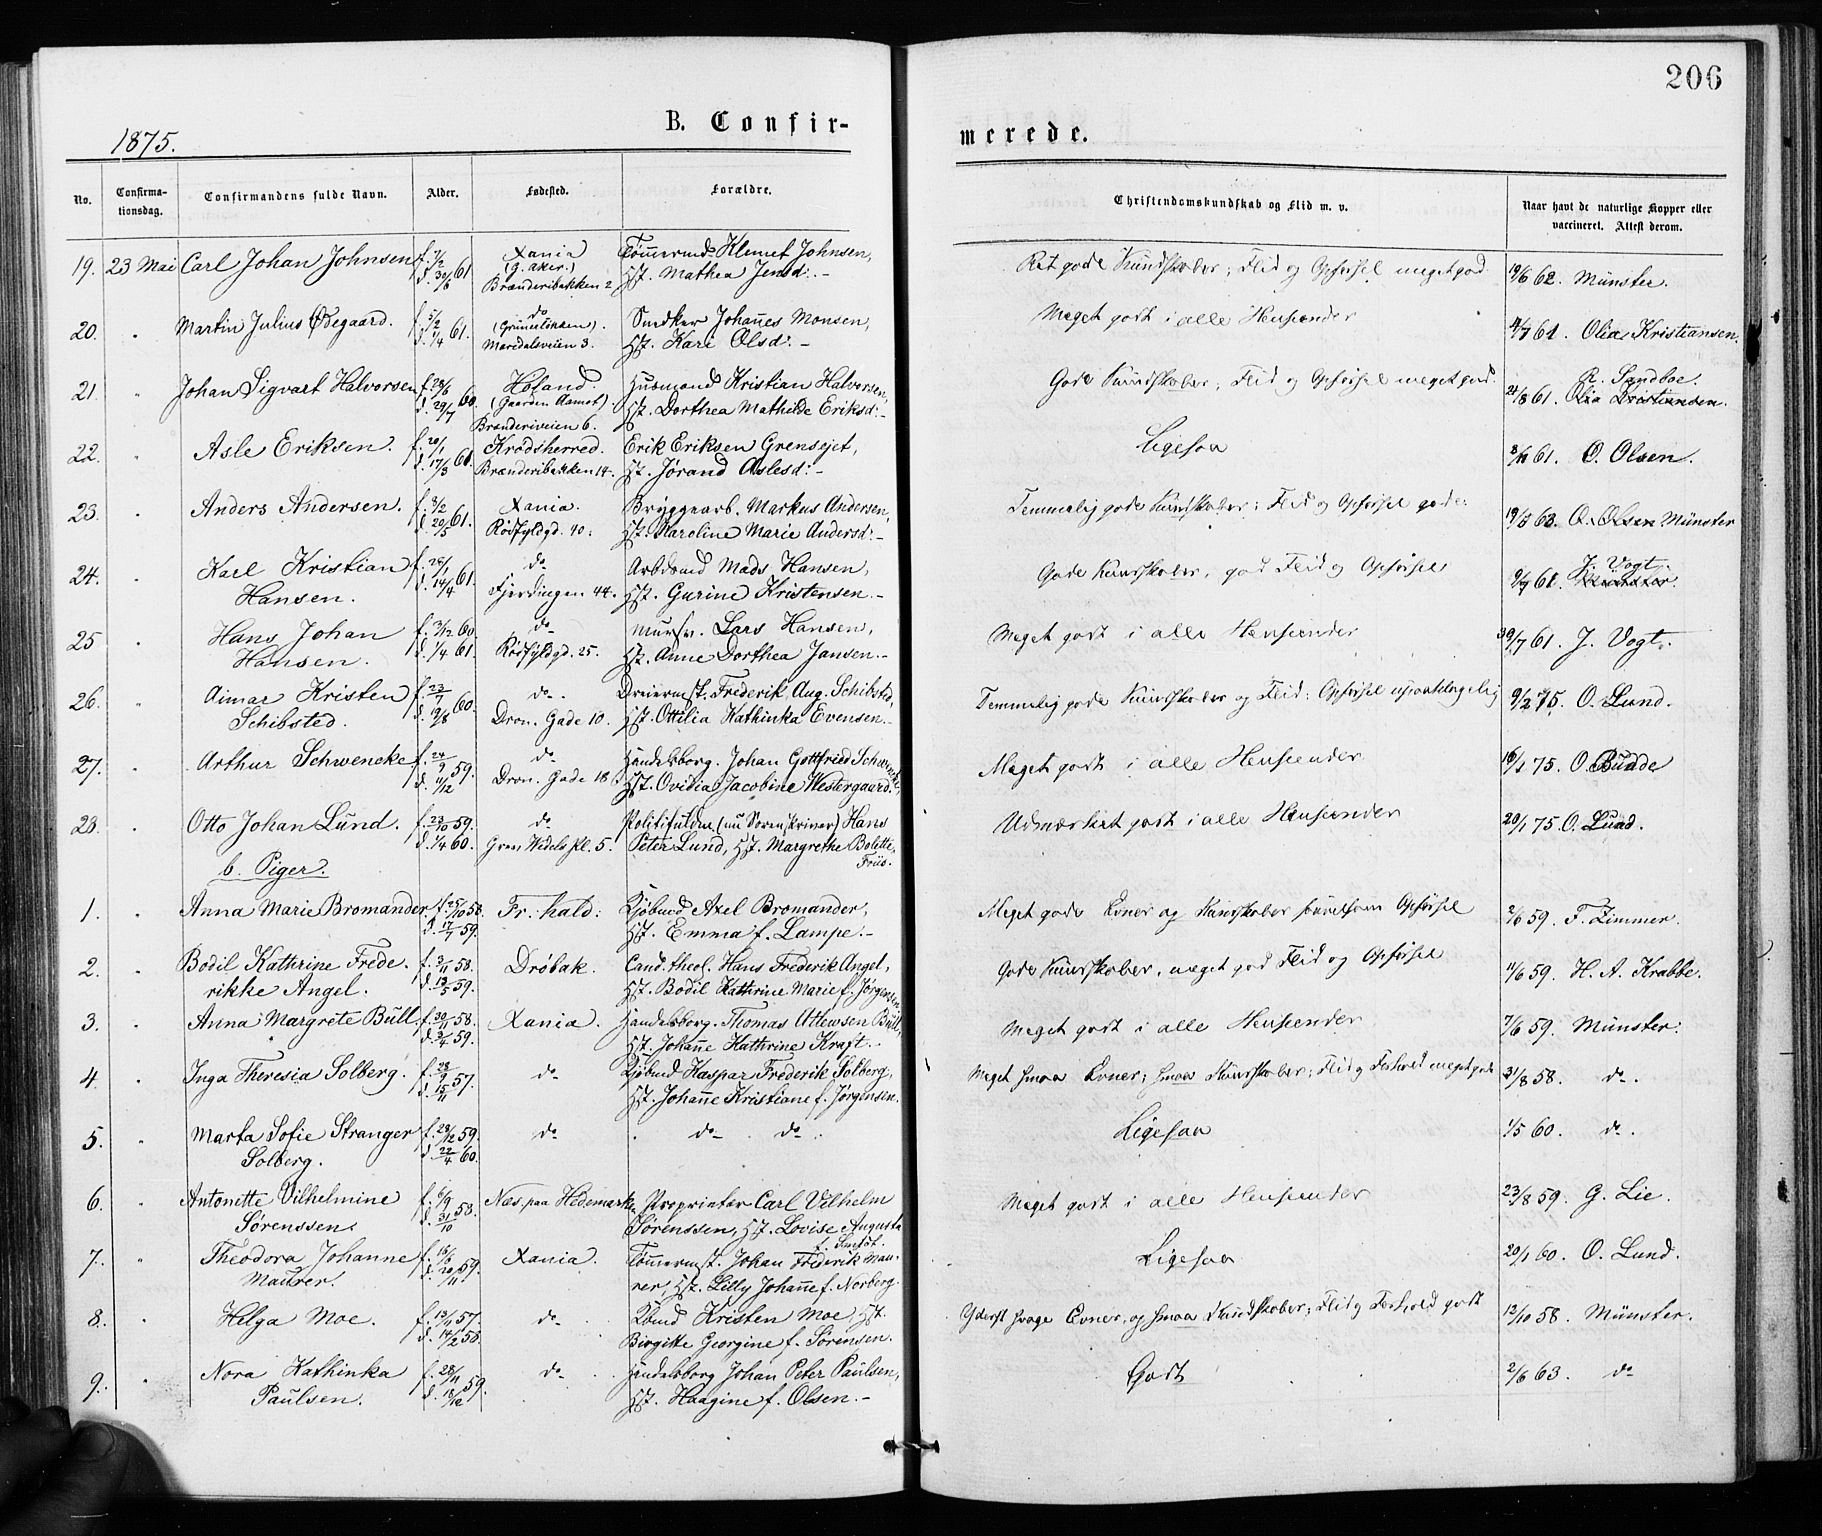 206
1875.
B. Confir-
merede.
No.
Confirma-
tionsdag.
Confirmandens fulde Navn.
Alder.
Fødested.
Forældre.
Christendomskundskab og Flid m. v.
Naar havt de naturlige Kopper eller
vaccineret. Attest derom.
19. 23 Mai Carl Johan Johnsen f. 7/2 d. 30/6 61 Xania (g. aker.) Brænderibakken 2 Tömmermd. Klemet Johnsen, Hst. Mathea Jensd:- Ret gode Kundskaber; Flid og Opförsel meget god 19/6 62. Münster.
20. " Martin Julius Ødegaard. f. 5/2 d. 1/4 61. do (Grünerlökken). Maridalsveien 3. Snedker Johañes Monsen, Hst. Kari Olsd:- Meget godt i alle Henseender 4/7 61. Olia Kristiansen.
21. " Johan Sigvart Halvorsen f. 28/6 d. 29/7 60. Höland. (Gaarden Aamot). Brænderiveien 6. Husmand Kristian Halvorsen, Hst. Dorthea Mathilde Eriksd:- Gode Kundskaber; Flid og Opförsel meget god. 24/8 61. R. Sandboe. Olia Kristiansen.
22. " Asle Eriksen. f. 20/1 d. 17/3 60. Krødsherred. Brænderibakken 14. Erik Eriksen Grensejet, Hst. Jørand Aslesd:- Ligesaa 3/10 61. O. Olsen.
23. " Anders Andersen. f. 3/2 d. 20/5 61. Xania. Rödfyldgd. 40. Bryggearb. Markus Andersen, Hst. Karoline Marie Andersd:- Temmelig gode Kundskaber; Flid og Opförsel gode. 19/3 63. O. Olsen Münster
24. " Karl Kristian Hansen. f. 26/1 d. 14/4 61. do Fjerdingen 44. Arbdsmd Mads Hansen, Hst. Gurine Kristensen.- Gode Kundskaber, god Flid og Opförsel 9/9 61. J. Vogt. Münster.
25 " Hans Johan Hansen. f. 3/12 60. d. 1/4 61. do Rödfyldgd. 25. Mursv. Lars Hansen, Hst. Anne Dorthea Jansen.- Meget godt i alle Henseender 30/7 61. J. Vogt.
26. " Aimar Kristen Schibsted. f. 23/7 d. 19/8 60. do. Dron. Gade 10. Dreiermst. Frederik Aug. Schibsted, Hst. Ottilia Kathinka Evensen.- Temmelig gode Kundskaber og Flid; Opförsel upaaklagelig 9/2 75. O. Lund.
27. " Arthur Schwencke f. 24/9 d. 11/12 59. do Dron. Gade 18 Handelsborg. Johan Gottfried Schwencke, Hst. Ovidia Jacobine Westergaard. Meget godt i alle Henseender 16/1 75. O. Bunde
28. " Otto Johan Lund. f. 23/10 59. d. 1/4 60. do Grev Wedels Pl. 5. Politifuldm. (nu Sorenskriver) Hans Peter Lund, Hst. Margrethe Bolette Friis. Udmærket godt i alle Henseender 20/1 75. O. Lund.
b. Piger.
1. " Anna Marie Bromander f. 25/10 58. d. 17/7 59. Fr: hald: Kjöbmd Axel Bromander, Hst. Emma f. Lampe.- Meget gode Evner og Kundskaber Opförsel 2/6 59. F. Zimmer.
2. " Bodil Kathrine Frede- rikke Angel. f. 3/11 58. d. 13/5 59. Dröbak. Cand. theol. Hans Frederik Angel, Hst. Bodil Kathrine Marie f. Jörgensen Gode Kundskaber, meget god Flid og Opförsel 11/6 59. H. A. Krabbe.
3. " Anna Margrete Bull. f. 30/11 58. d. 3/4 59. Xania. Handelsborg. Thomas Bull, Hst. Johañe Kathrine Kraft.- Meget godt i alle Henseender 7/6 59. Münster:
4. " Inga Theresia Solberg. f. 23/7 d. 15/11 57. do Kjöbmd Kaspar Frederik Solberg, Hst. Johañe Kristiane f. Jörgensen. Meget smaa Evner; smaa Kundskaber; Flid og Forhold meget gode 31/8 58. do.
5. " Marta Sofie Stranger Solberg. f. 28/12 59. d. 22/4 60. do do do Ligesaa 1/5 60. do.
6. " Antonette Vilhelmine Sörenssen. f. 6/9 d. 31/10 58. Nes, paa Hedemarken Proprietær Carl Vilhelm Sörenssen, Hst. Lovise Augusta Meget godt i alle Henseender 23/8 59. G. Lie.
7. " Theodora Johanne Maurer. f. 15/6 d. 20/11 59. Xania. Tömmermst. Johan Frederik Mau- rer, Hst. Lilly Johañe f. Norberg. Ligesaa 20/1 60. O. Lund.
8. " Helga Moe. f. 13/11 57. d. 14/2 58. do Kbmd Kristen Moe, Hst. Birgitte Georgine f. Sörensen. Yderst svage Evner, og smaa Kundskaber; Flid og Forhold godt 12/10 58. Münster.
9. " Nora Kathinka Paulsen. f. 28/11 d. 18/12 59. do Handelsborg Johan Peter Paulsen, Hst. Haagine f. Olsen.- Godt 2/6 63. do